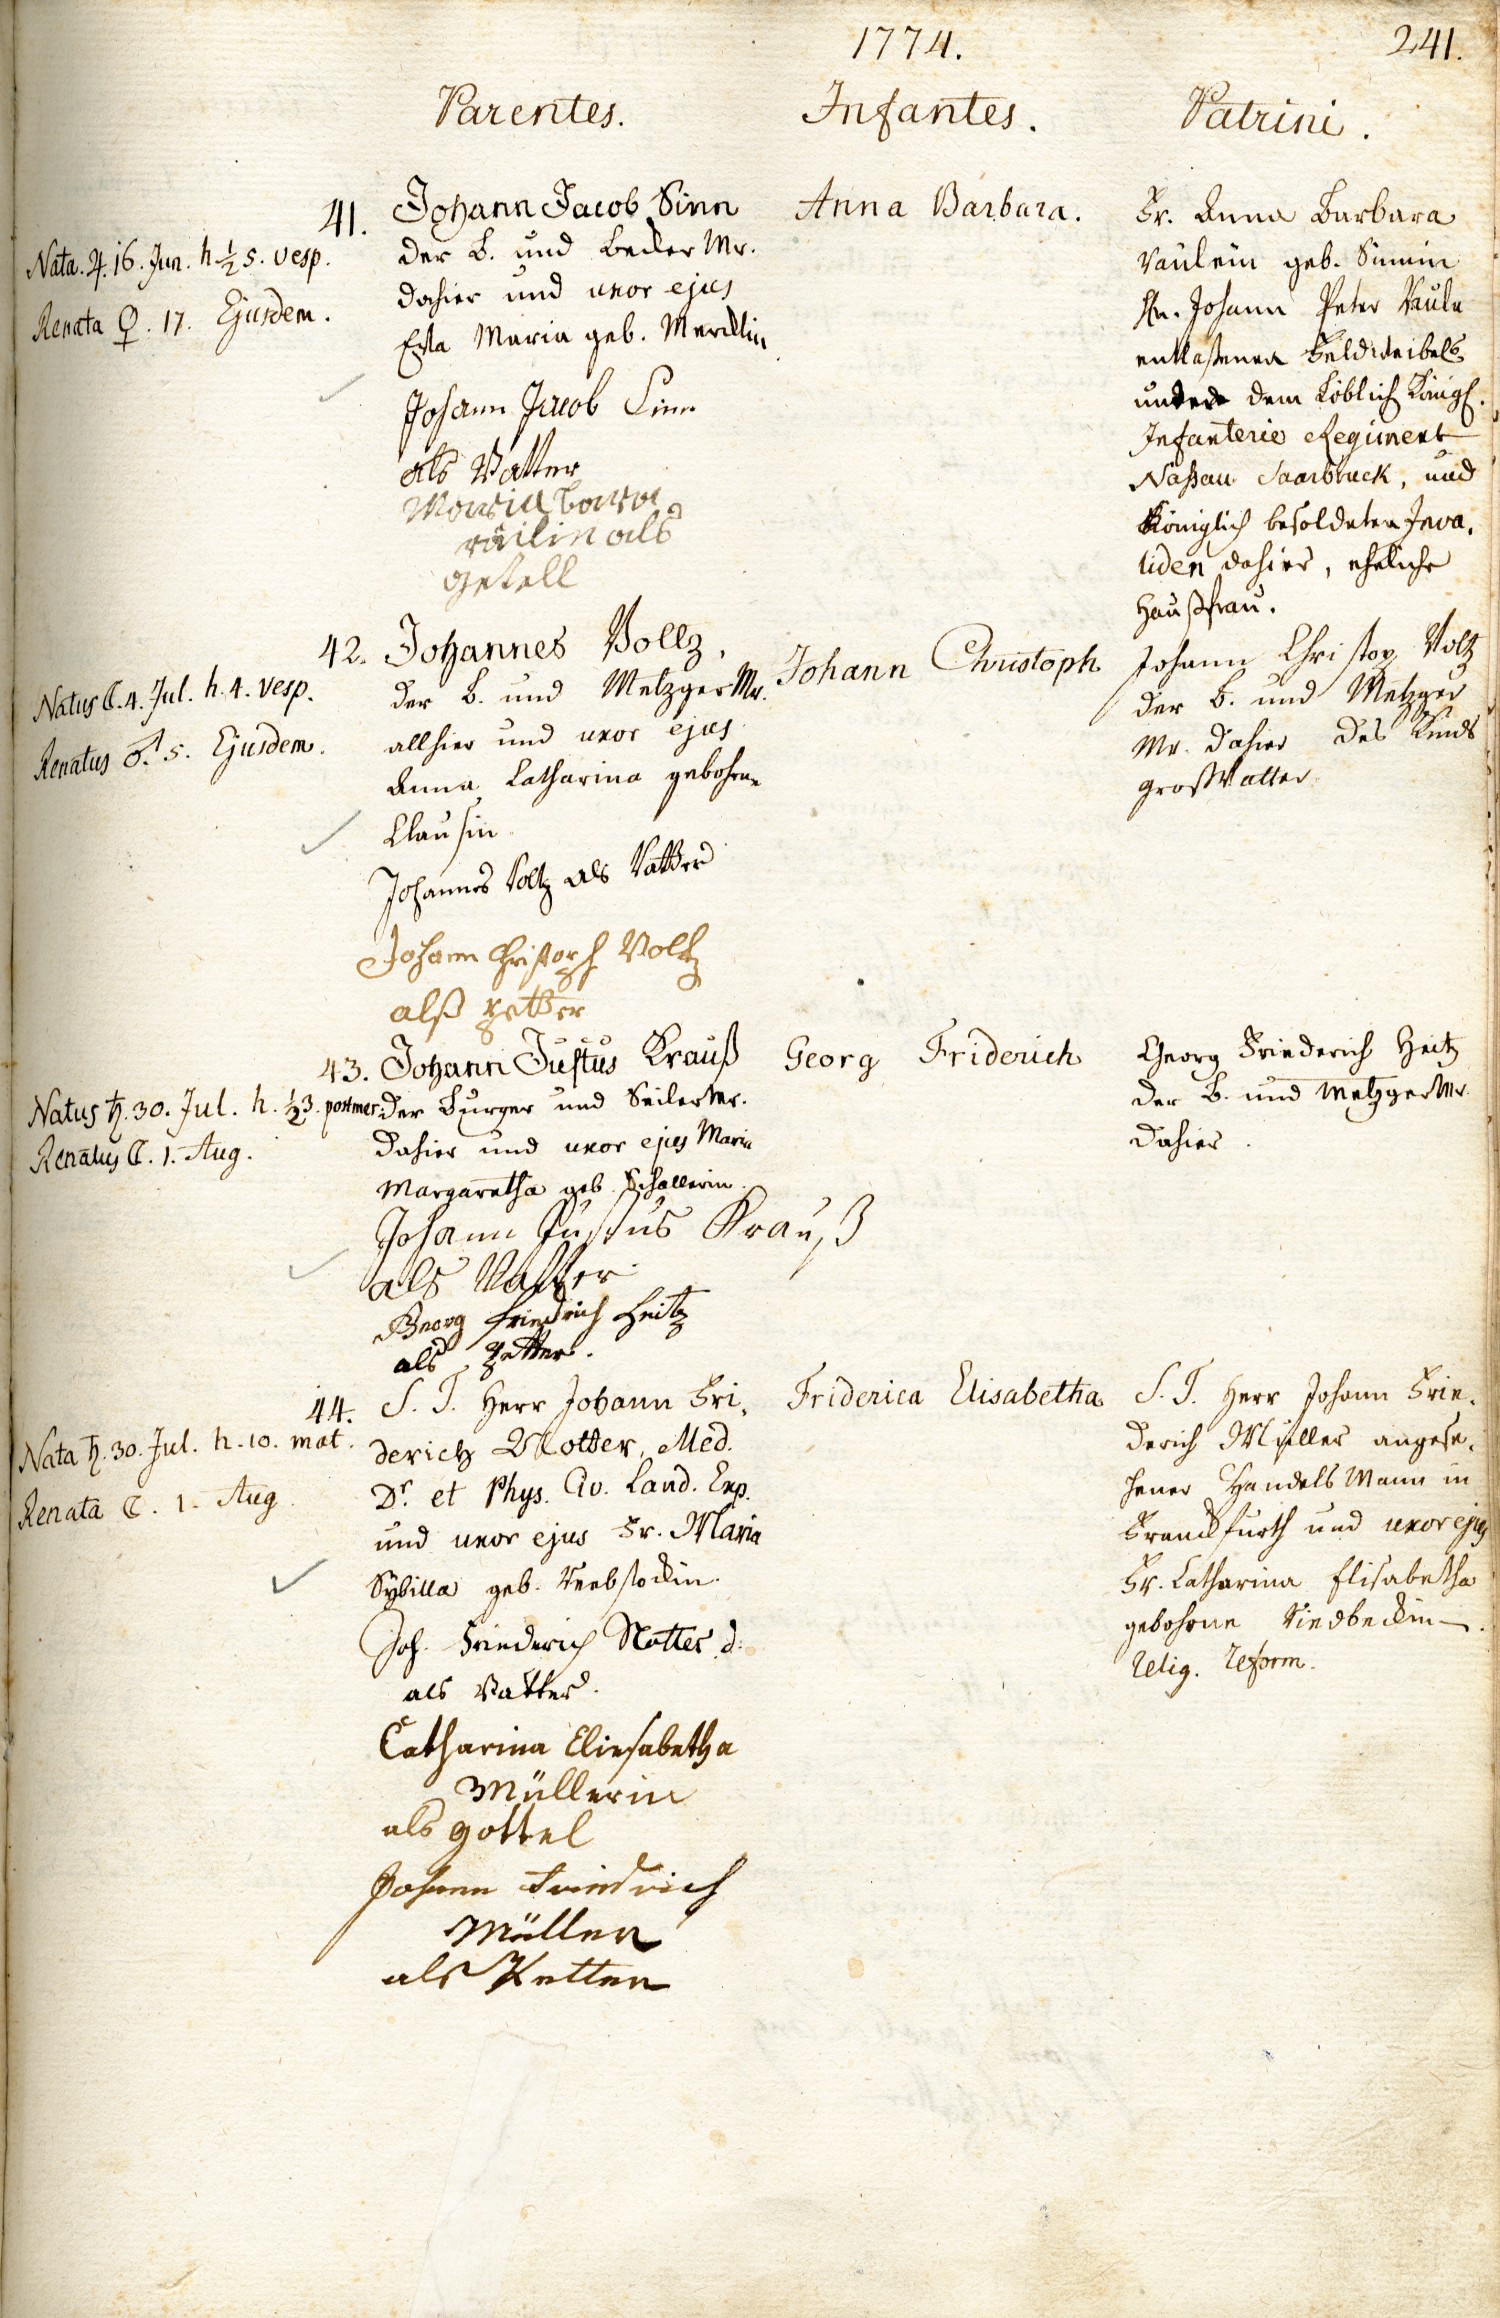 1774.
241.
Parentes.
Infantes.
Patrini.
41.
Nata. ♃. 16. Jun. h. ½ 5. vesp.
Renata ♀. 17. Ejusdem.
Johann Jacob Sinn
der B. und Becker Mr.
dahier und uxor ejus
Eva Maria geb. Mercklin
Johann Jacob Sinn
als Vatter
als
getell
Anna Barbara.
Fr. Anna Barbara
geb. Sinnin
Hn. Johann Peter
entlaßenen Feldweibels
unter dem Löblich Königl.
Infanterie Regiment
Naßau Saarbruck, und
Königlich besoldeten Inva,
liden dahier, eheliche
Haußfrau.
42.
Natus ☾. 4. Jul. h. 4. vesp.
Renatus ♂. 5. Ejusdem.
Johannes Voltz,
der B. und Metzger Mr.
allhier und uxor ejus
Anna Catharina gebohrne
Clausin
Johannes Voltz als Vatter
Johann Christoph Voltz
alß getter
Johann Christoph
Johann Christop Voltz
der B. und Metzger
Mr. dahier des Kinds
großVatter
43.
Natus ♄. 30. Jul. h. ½ 3. postmer.
Renatus ☾. 1. Aug.
Johann Justus Krauß
der Burger und Seiler Mr.
dahier und uxor ejus Maria
Margaretha geb. Schallerin.
Johann Justus Krauß
als Vatter
Georg Friedrich Heitz
als getter.
Georg Friderich
Georg Friederich Heitz
der B. und Metzger Mr.
dahier.
44.
Nata ♄. 30. Jul. h. 10. mat.
Renata ☾. 1. Aug
S. T. Herr Johann Fri,
derich Notter, Med.
Dr. et Phys. Civ. Land. Exp.
und uxor ejus Fr. Maria
Sybilla geb. Rebstockin.
Joh. Friederich Notter d.
als Vatter.
Catharina Eliesabetha
Müllerin
als gottel
Johann Friedrich
Müller
als Petter
Friderica Elisabetha
S. T. Herr Johann Frie,
derich Müller angese,
hener Handels Mann in
Franckfurth und uxor ejus
Fr. Catharina Elisabetha
gebohrne Riedbeckin
Relig. Reform.